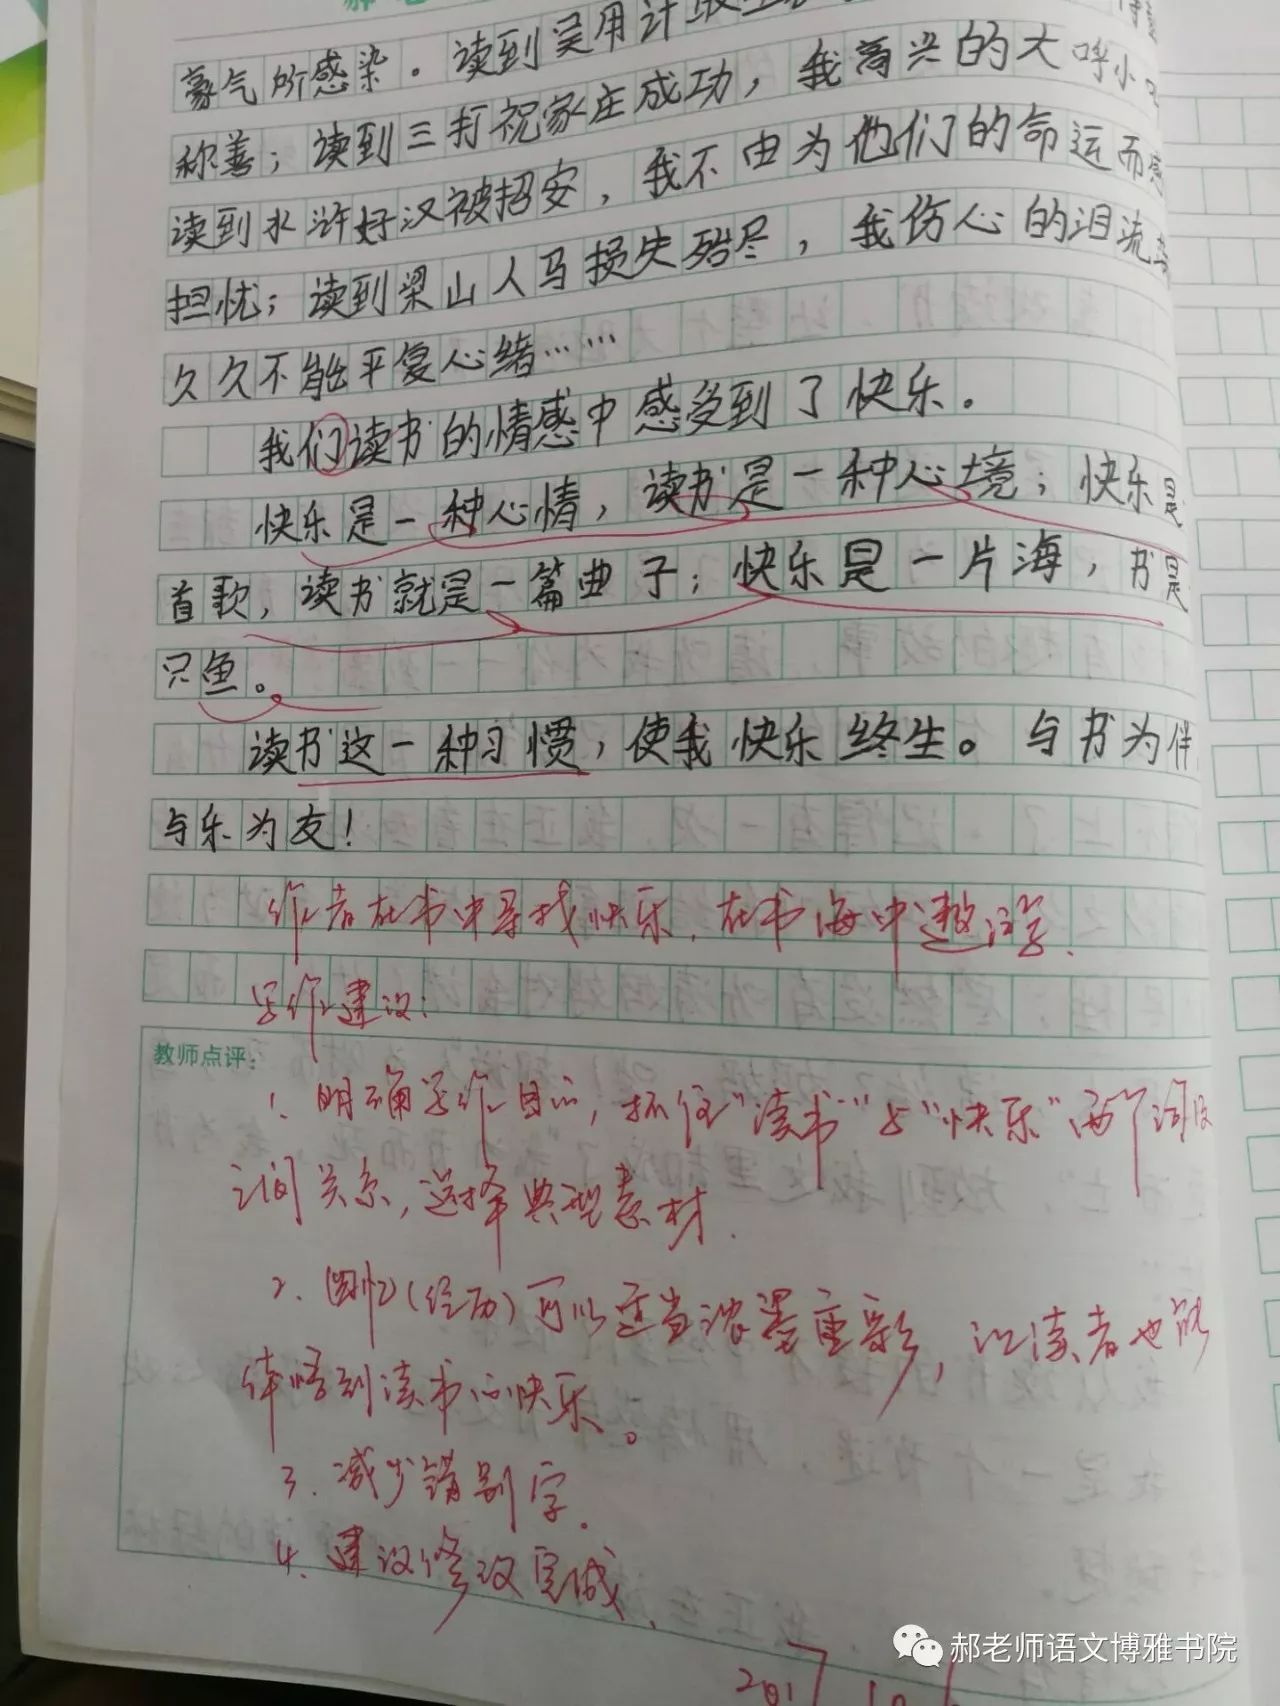 豪气所感染。读到吴用计取生
称善；读到三打祝家庄成功，我高兴的大呼小
读到水浒好汉被招安，我不由为他们的命运而感
担忧；读到梁山人马损失殆尽，我伤心的泪流
久久不能平复心绪……
我们读书的情感中感受到了快乐。
快乐是一种心情，读书是一种心境；快乐是
首歌，读书就是一篇曲子；快乐是一片海，书是
只鱼。
读书这一种习惯，使我快乐终生。与书为伴
与乐为友！
作者在书中寻找快乐，在书海中遨游。
写作建议：
教师点评：
1. 明确写作目的，抓住“读书”与“快乐”两个词
之间关系，选择典型素材.
2. 回忆（经历）可以适当浓墨重彩，让读者也能
体悟到读书的快乐。
3. 减少错别字.
4. 建议修改完成.
2017
郝老师语文博雅书院